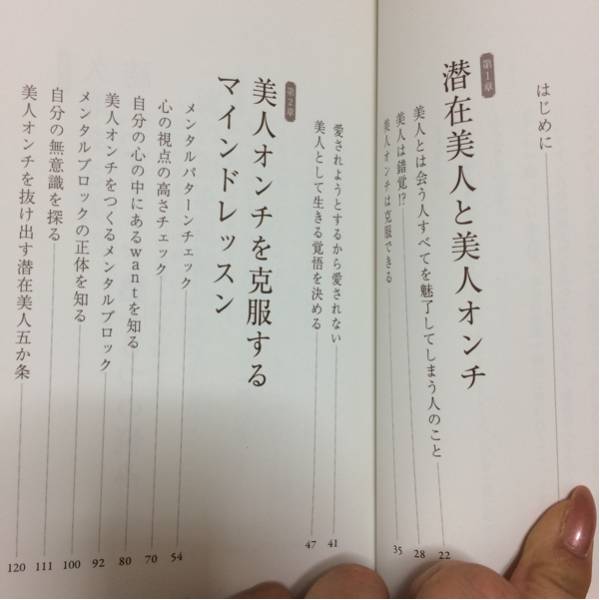 はじめに
第1章
潜在美人と美人オンチ
美人とは会う人すべてを魅了してしまう人のこと 22
美人は錯覚!? 28
美人オンチは克服できる 35
愛されようとするから愛されない 41
美人として生きる覚悟を決める 47
第2章
美人オンチを克服する
マインドレッスン
メンタルパターンチェック 54
心の視点の高さチェック 70
自分の心の中にあるwantを知る 80
美人オンチをつくるメンタルブロック 92
メンタルブロックの正体を知る 100
自分の無意識を探る 111
美人オンチを抜け出す潜在美人五か条 120